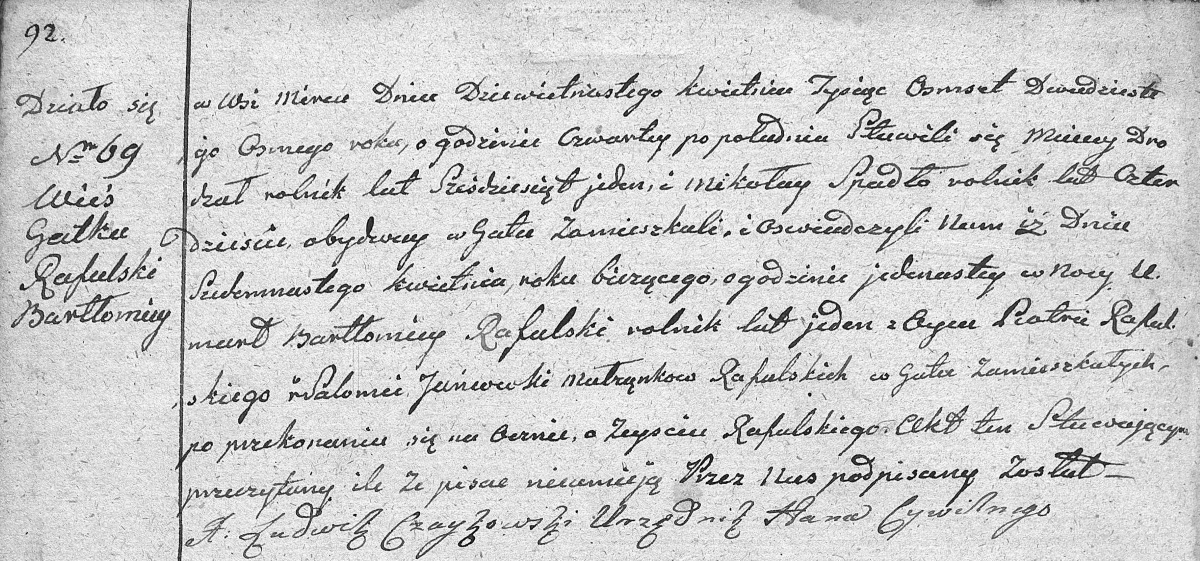 92.
Działo się
Nrm 69
Wieś
Gatka
Rafulski
Bartłomiey
w Wsi Mircu Dnia Dziewietnastego kwietnia Tysiąc Osmset Dwudziest
go Osmego roku, o godzinie Czwartey po południu Stawili się Maciey Dro
zał rolnik lat Sześdziesiąt jeden, i Mikołay Spadło rolnik lat Czter
dzieście, obydway w Gatce Zamieszkali, i oswiadczyli Nam iż Dnia
Siedemnastego kwietnia, roku bierzącego, o godzinie jedenastey w Nocy U.
mart Bartłomiey Rafulski rolnik lat jeden z Oyca Piotra Raful.
skiego i Salomei Janewski Małżonkow Rafulskich w Gatce Zamieszkałych,
po przekonaniu się na ocznie, o Zeyściu Rafulskiego. Akt ten Stawaiącym
przeczytany ile Ze pisac nieumieją Przez Nas podpisany Został
X. Ludwik Czaykowski Urzędnik Stanu Cywilnego